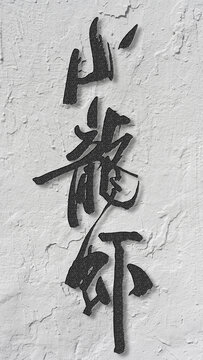 小龍虾